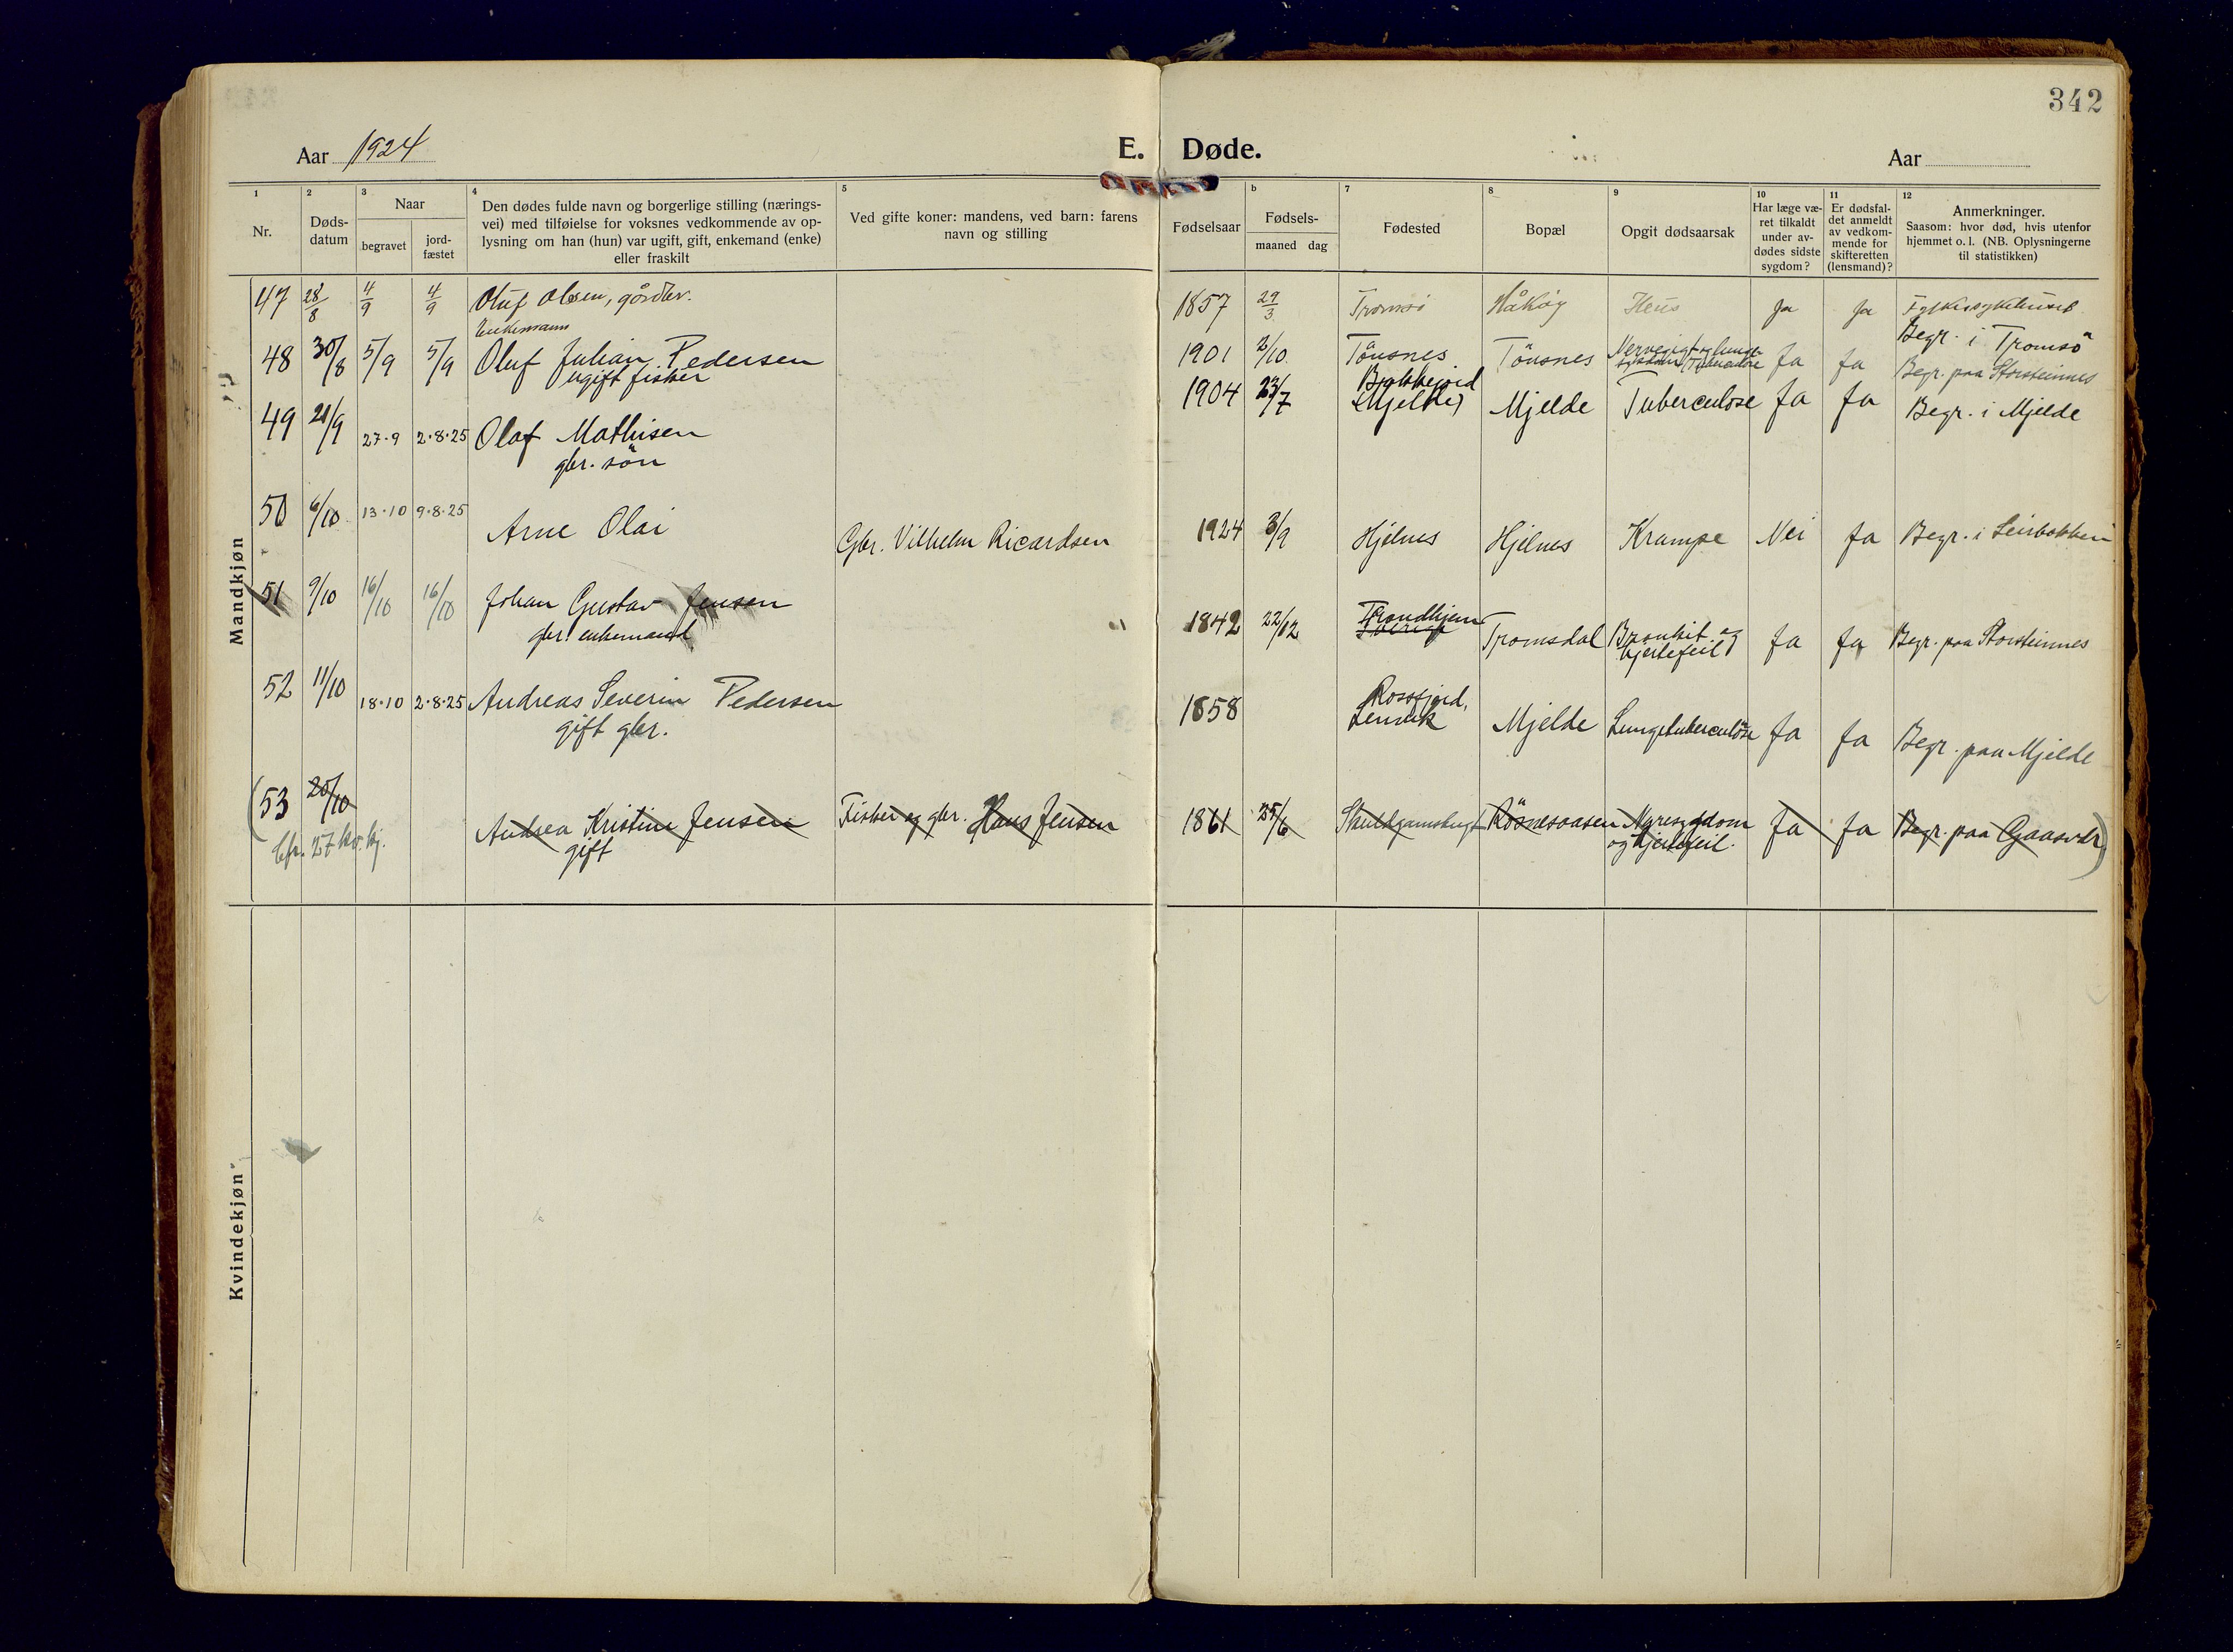 342
Aar 1924
E. Døde.
Aar
1
2
3
4
5
b
7
8
9
10
11
12
Nr.
Døds-
datum
Naar
begravet
jord-
fæstet
Den dødes fulde navn og borgerlige stilling (nærings-
vei) med tilføielse for voksnes vedkommende av op-
lysning om han (hun) var ugift, gift, enkemand (enke)
eller fraskilt
Ved gifte koner: mandens, ved barn: farens
navn og stilling
Fødselsaar
Fødsels-
maaned dag
Fødested
Bopæl
Opgit dødsaarsak
Har læge væ-
ret tilkaldt
under av-
dødes sidste
sygdom?
Er dødsfal-
det anmeldt
av vedkom-
mende for
skifteretten
(lensmand)?
Anmerkninger.
Saasom: hvor død, hvis utenfor
hjemmet o. l. (NB. Oplysningerne
til statistikken)
Mandkjøn
47 28/8 4/9 4/9 Oluf Olsen, gårdbr. 1857 29/3 Tromsö Håköy Ileus Ja Ja Fylkessykehuset
Enkemann Begr. i Tromsö
48 30/8 5/9 5/9 Oluf Julian Pedersen 1901 2/10 Tönsnes Tönsnes Nervegigt og lunge- Ja Ja Begr. paa Storsteinnes
ugift fisker
49 21/9 27.9 2.8.25 Olaf Mathisen 1904 23/7 (Mjelde) Mjelde Tuberculose Ja Ja Begr. i Mjelde
gbr. sön
50 6/10 13.10 9.8.25 Arne Olai Gbr. Vilhelm Ricardsen 1924 3/9 Hjelnes Hjelnes Krampe Nei Ja Begr. i Leirbakken
51 9/10 16/10 16/10 Johan Gustav Jensen 1842 22/12 Trondhjem Tromsdal Bronkit. og Ja Ja Begr. paa Storsteinnes
gbr. enkemand hjertefeil
52 11/10 18.10 2.8.25 Andreas Severin Pedersen 1858 Rossfjord, Mjelde Lungetuberculöse Ja Ja Begr. paa Mjelde
gift gbr. Lenvik
(53 20/10 Andrea Kristine Jensen Fisker og gbr. Hans Jensen 1861 25/6 Skuldgamsbugt Rösnesaasen Nyresygdom Ja Ja Begr. paa Gaasvær)
gift og hjertefeil.
Cfr. 27 kv. kj.
Kvindekjøn